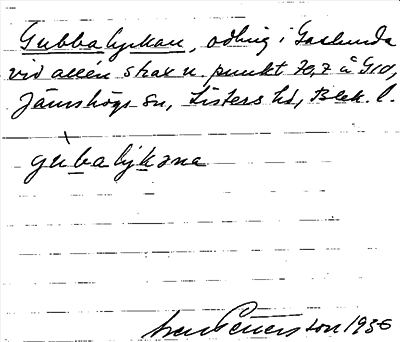 Gubbalyckan, odling i Gaslunda
vid allén strax n. punkt 70,7 å G10,
Jämshögs sn, Listers hd, Blek. l.
gùbalýkane
Petersson 1936